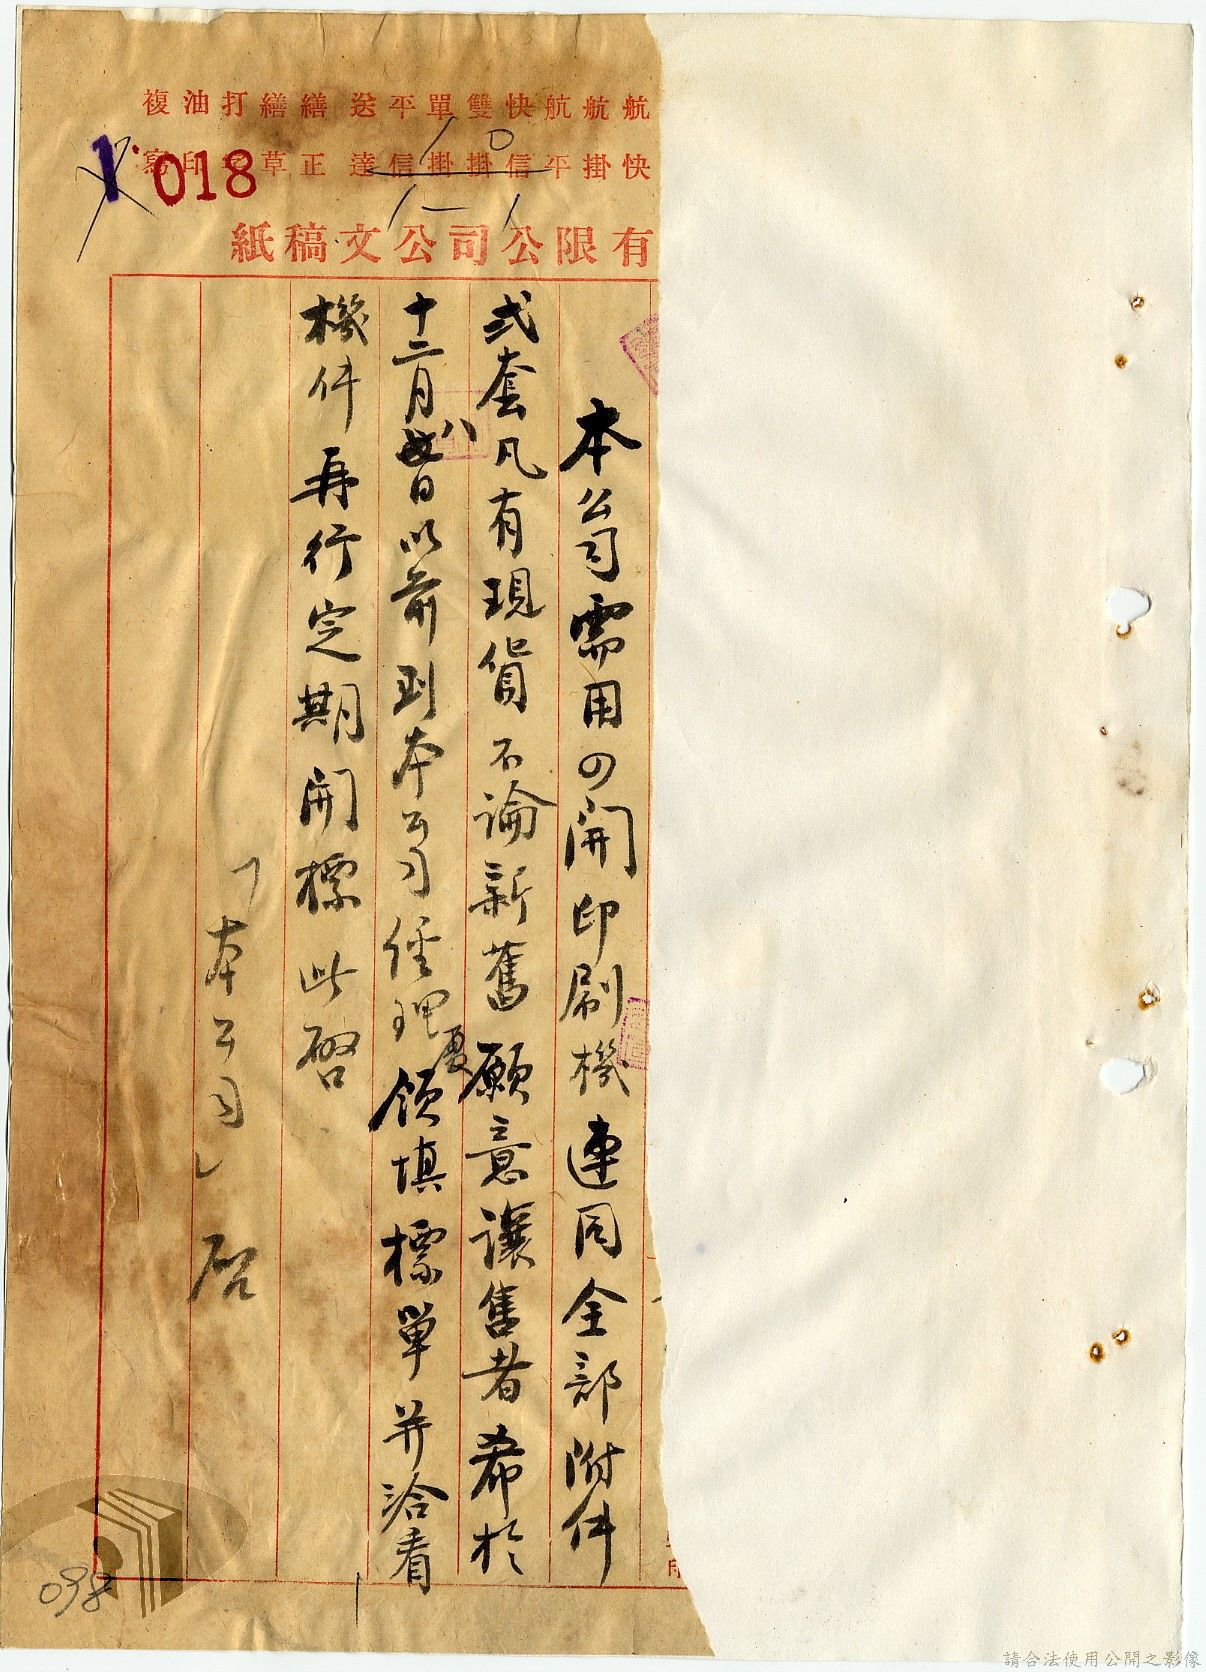 航航航快雙單平送繕繕打油複
快掛平信掛掛信達正草字印寫
018
10
有限公司公文稿紙
本公司需用四開印刷機連同全部附件
弍套凡有現貨不論新舊願意讓售者希於
十二月廿八日以前到本公司經理處領填標單并洽看
機件再行定期開標此啓
「本公司」啓
098
請合法使用公開之影像